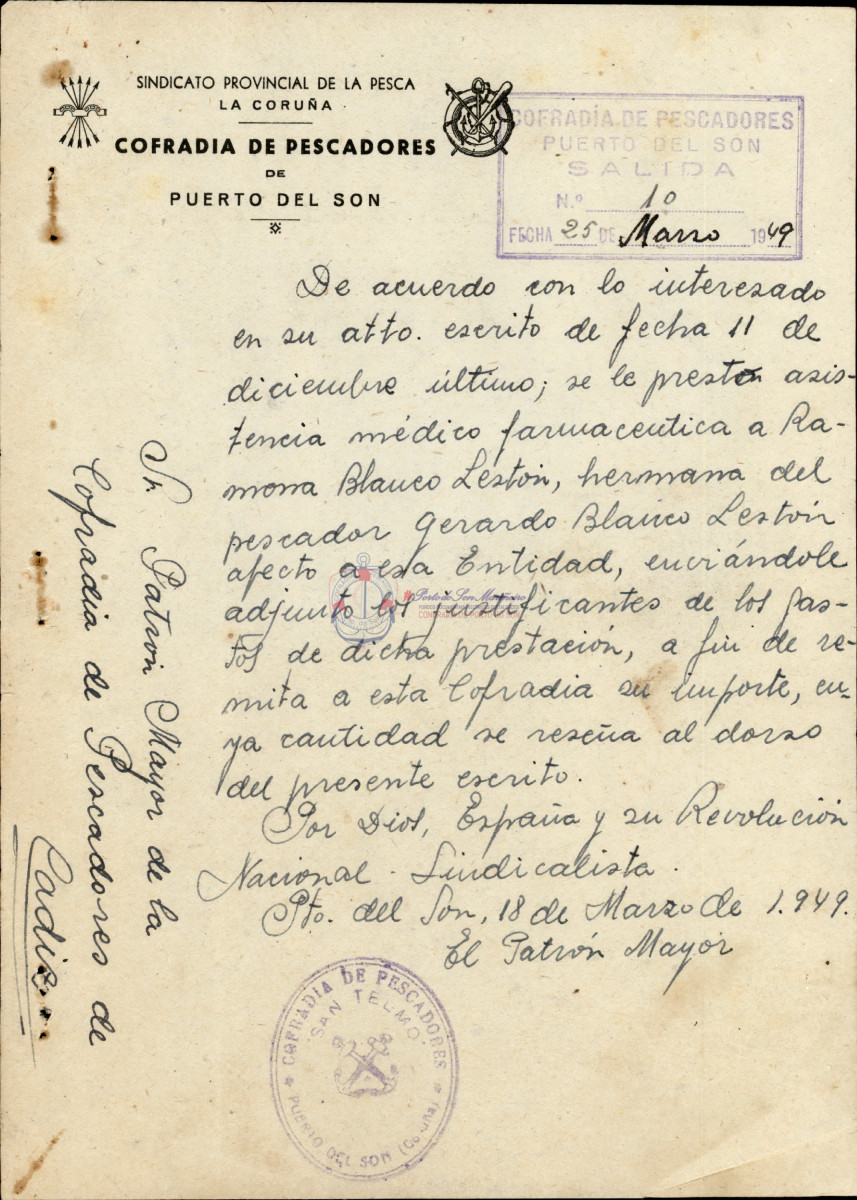 SINDICATO PROVINCIAL DE LA PESCA
LA CORUÑA
COFRADIA DE PESCADORES
DE
PUERTO DEL SON
COFRADÍA DE PESCADORES
PUERTO DEL SON
SALIDA
N.º 10
FECHA 25 DE Marzo 1949
De acuerdo con lo interesado
en su atto. escrito de fecha 11 de
diciembre último; se le prestó asis-
tencia médico farmaceutica a Ra-
mona Blanco Lestón, hermana del
pescador Gerardo Blanco Lestón
afecto a esa Entidad, enviándole
adjunto los justificantes de los gas-
tos de dicha prestación, a fin de re-
mita a esta Cofradia su importe, cu-
ya cantidad se reseña al dorso
del presente escrito.
Por Dios, España y su Revolución
Nacional-Sindicalista.
Pto. del Son, 18 de Marzo de 1.949.
El Patrón Mayor
Sr. Patrón Mayor de la
Cofradia de Pescadores de
Cadiz.
COFRADIA DE PESCADORES
"SAN TELMO"
PUERTO DEL SON (Coruña)
Porto do Son Mariñeiro